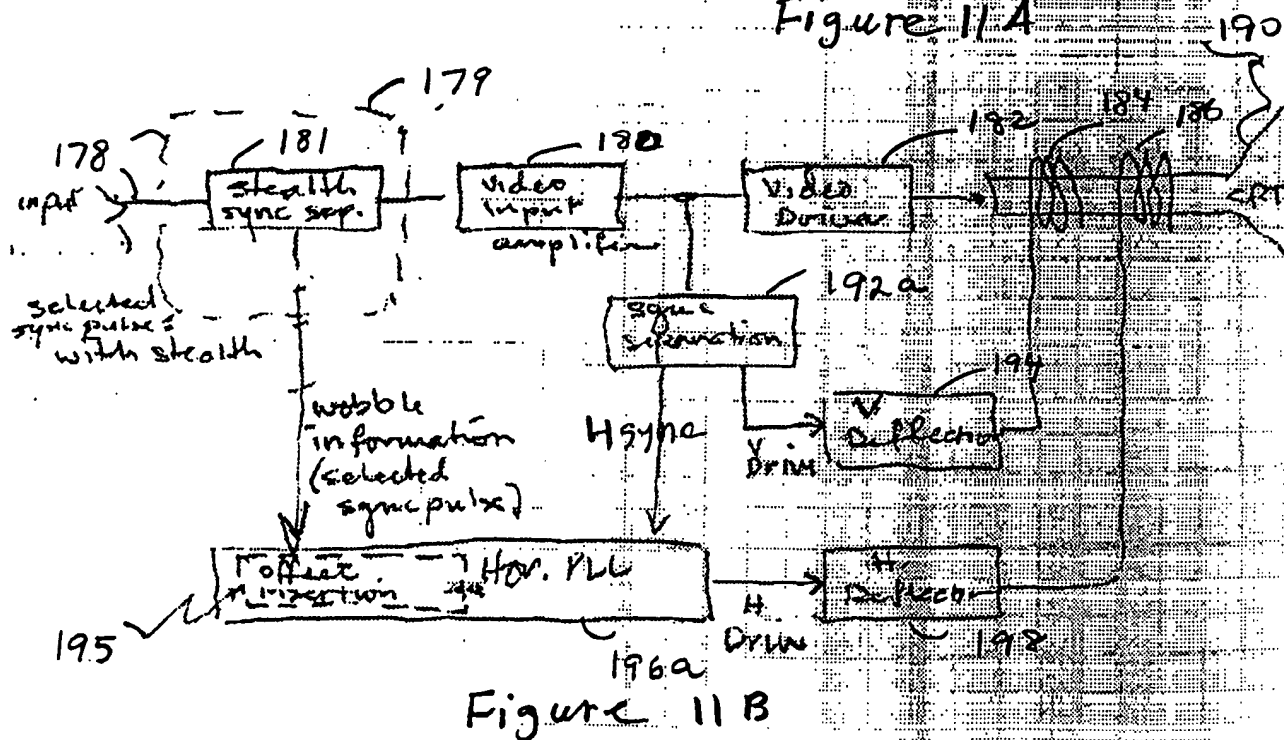 Figure 11A
190
179
178
181
180
182
184
186
input
stealth
sync sep.
video
input
amplifier
Video
Driver
CRT
selected
sync pulses
with stealth
192a
sync
separation
194
V
Deflection
wobble
information
(selected
sync pulse)
H sync
V
Drive
offset
insertion
Hor. PLL
H
Drive
H
Deflection
195
196a
198
Figure 11B